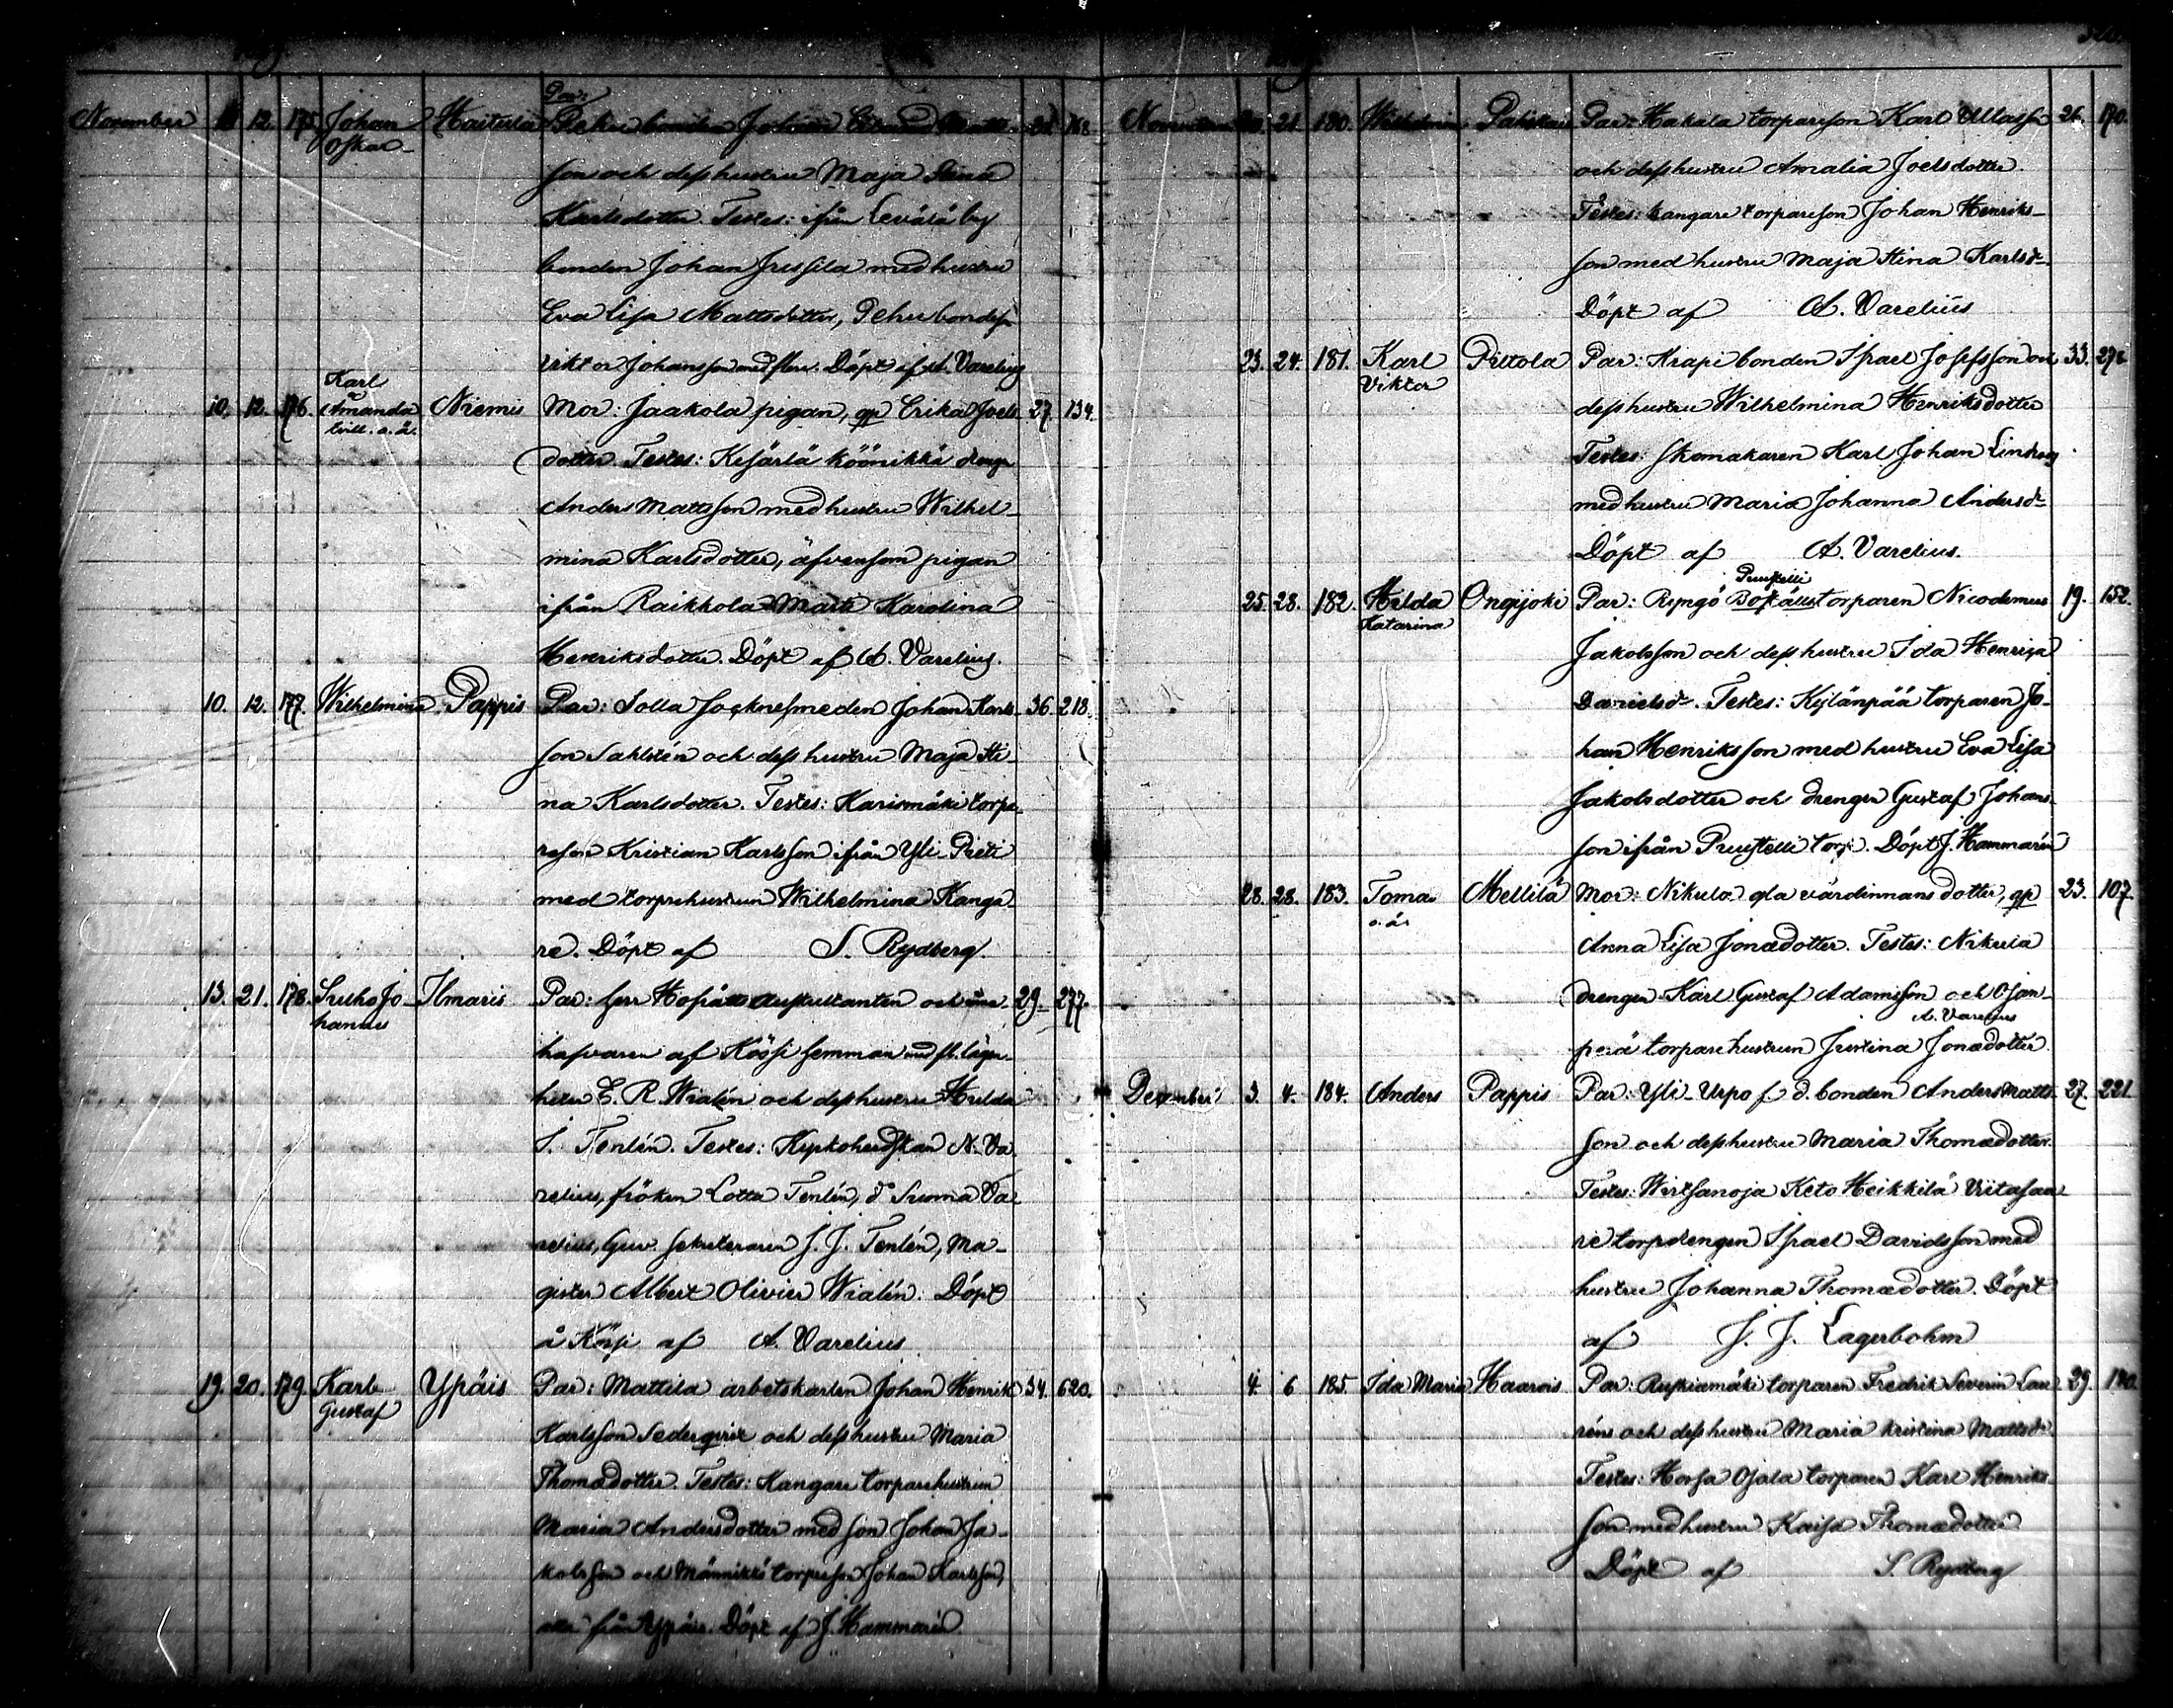 November 12. 175. Johan Haitula Par: Pehu bonden Johan Matts- 168.
Oskar
son och dess hustru Maja Stina
Karlsdotter. Testes: ifrån Levälä by
bonden Johan Jussila med hustru
Eva Lisa Mattsdotter, Pehu bondeson
Viktor Johansson med flere. Döpt af A. Varelius
10. 12. 176. Karl Amanda Niemis Mor: Jaakola pigan, qp Erika Joels- 27. 134.
tvill. o. ä.
dotter. Testes: Kesärlä köönikkä dreng
Anders Mattsson med hustru Wilhel-
mina Karlsdotter, äfvensom pigan
ifrån Raikkola Marta Karolina
Henriksdotter. Döpt af A. Varelius.
10. 12. 177. Wilhelmina Pappis Par: Solla socknesmeden Johan Karls- 36. 218.
son Sahlstén och dess hustru Maja Sti-
na Karlsdotter. Testes: Karismäki torpa-
reson Kristian Karlsson ifrån Yli Pieti
med torprehustrun Wilhelmina Kanga-
re. Döpt af S. Rydberg.
13. 21. 178. Sulho Jo- Ilmaris Par: herr Hofrätts auskultanten och inne- 29. 277.
hannes
hafvaren af Köösi hemman med fl. lägen-
heter E. R. Wialén och dess hustru Hilda
S. Tenlén. Testes: Kyrkoherdskan N. Va-
relius, fröken Lotta Tenlén, d:o Suoma Va-
relius, Guv. sekreteraren J. J. Tenlén, Ma-
gister Albert Olivier Wialén. Döpt
å Köösi af A. Varelius
19. 20. 179. Karl Ypäis Par: Mattila arbetskarlen Johan Henrik 34. 620.
Gustaf
Karlsson Sederqvist och dess hustru Maria
Thomædotter. Testes: Kangare torparehustrun
Maria Andersdotter med son Johan Ja-
kobsson och Männikkö torpareson Johan Karlsson,
alla från Ypäis. Döpt af J. Hammarén
November 20. 21. 180. Wilhelmina Palikais Par: Hakala torpareson Karl Ullasson 26. 170.
och dess hustru Amalia Joelsdotter.
Testes: Kangare torpareson Johan Henriks-
son med hustru Maja Stina Karlsdr.
Döpt af A. Varelius
23. 24. 181. Karl Piltola Par: Krapi bonden Israel Josefsson och 33. 278.
Viktor
dess hustru Wilhelmina Henriksdotter
Testes: Skomakaren Karl Johan
med hustru Maria Johanna Andersdr
Döpt af A. Varelius.
Pruustelli
25. 28. 182. Hilda Ongijoki Par: Ryngö Boställstorparen Nicodemus 19. 152.
Katarina
Jakobsson och dess hustru Ida Henrica
Danielsdr. Testes: Kylänpää torparen Jo-
han Henriksson med hustru Eva Lisa
Jakobsdotter och drengen Gustaf Johans-
son ifrån Pruustelli torp. Döpt J. Hammarén
28. 28. 183. Tomas Mellilä Mor: Nikula gla värdinnans dotter, qp 23. 107.
o. ä.
Anna Lisa Jonædotter. Testes: Nikula
drengen Karl Gustaf Adamsson och Ojan-
A. Varelius
perä torparehustrun Justina Jonædotter.
December 3. 4. 184. Anders Pappis Par: Yli-Urpo f. d. bonden Anders Matts- 27. 221.
son och dess hustru Maria Thomædotter.
Testes: Wirtsanoja Keto Heikkilä Viitasaa-
re torpdrengen Israel Davidsson med
hustru Johanna Thomædotter. Döpt
af J. J. Lagerbohm
4. 6. 185. Ida Maria Haarois Par: Ruskiamäki torparen Fredrik Severin Lau- 29. 180.
réns och dess hustru Maria Kristina Mattsdr.
Testes: Horsa Ojala torparen Karl Henriks-
son med hustru Kaisa Thomædotter
Döpt af S. Rydberg